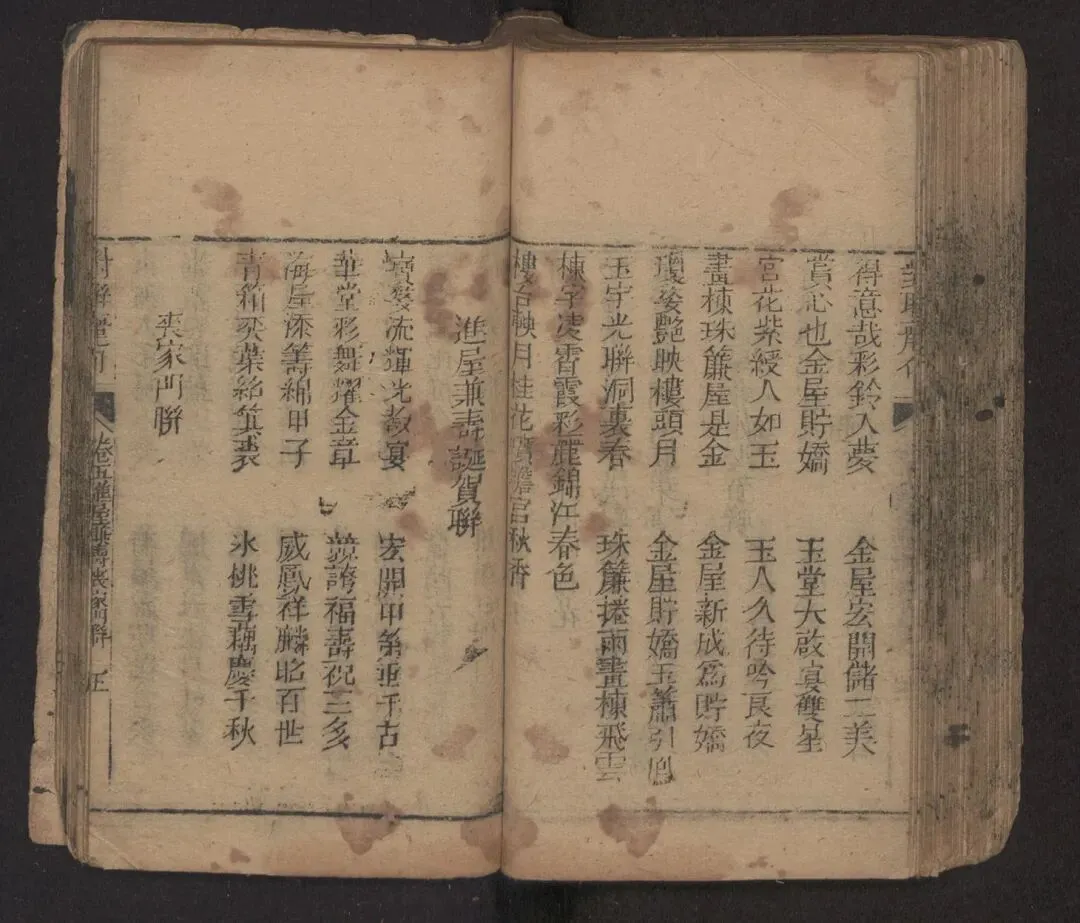 得意哉彩鈴入夢 金屋宏開儲二美
賞心也金屋貯嬌 玉堂大啟宴雙星
宮花紫綬人如玉 玉人久待吟良夜
畫棟珠簾屋是金 金屋新成為貯嬌
瓊姿艷映樓頭月 金屋貯嬌玉簫引鳳
玉宇光聯洞裏春 珠簾捲雨畫棟飛雲
棟宇凌霄霞彩麗錦江春色
樓台映月桂花 宮秋香
進屋兼壽誕賀聯
寶婺流輝光敞宴 宏開甲第垂千古
華堂彩舞耀金章 競誇福壽祝三多
海屋添籌綿甲子 威鳳祥麟昭百世
青箱奕葉紹箕裘 氷桃雪藕慶千秋
喪家門聯
卷五進屋兼壽喪家門聯